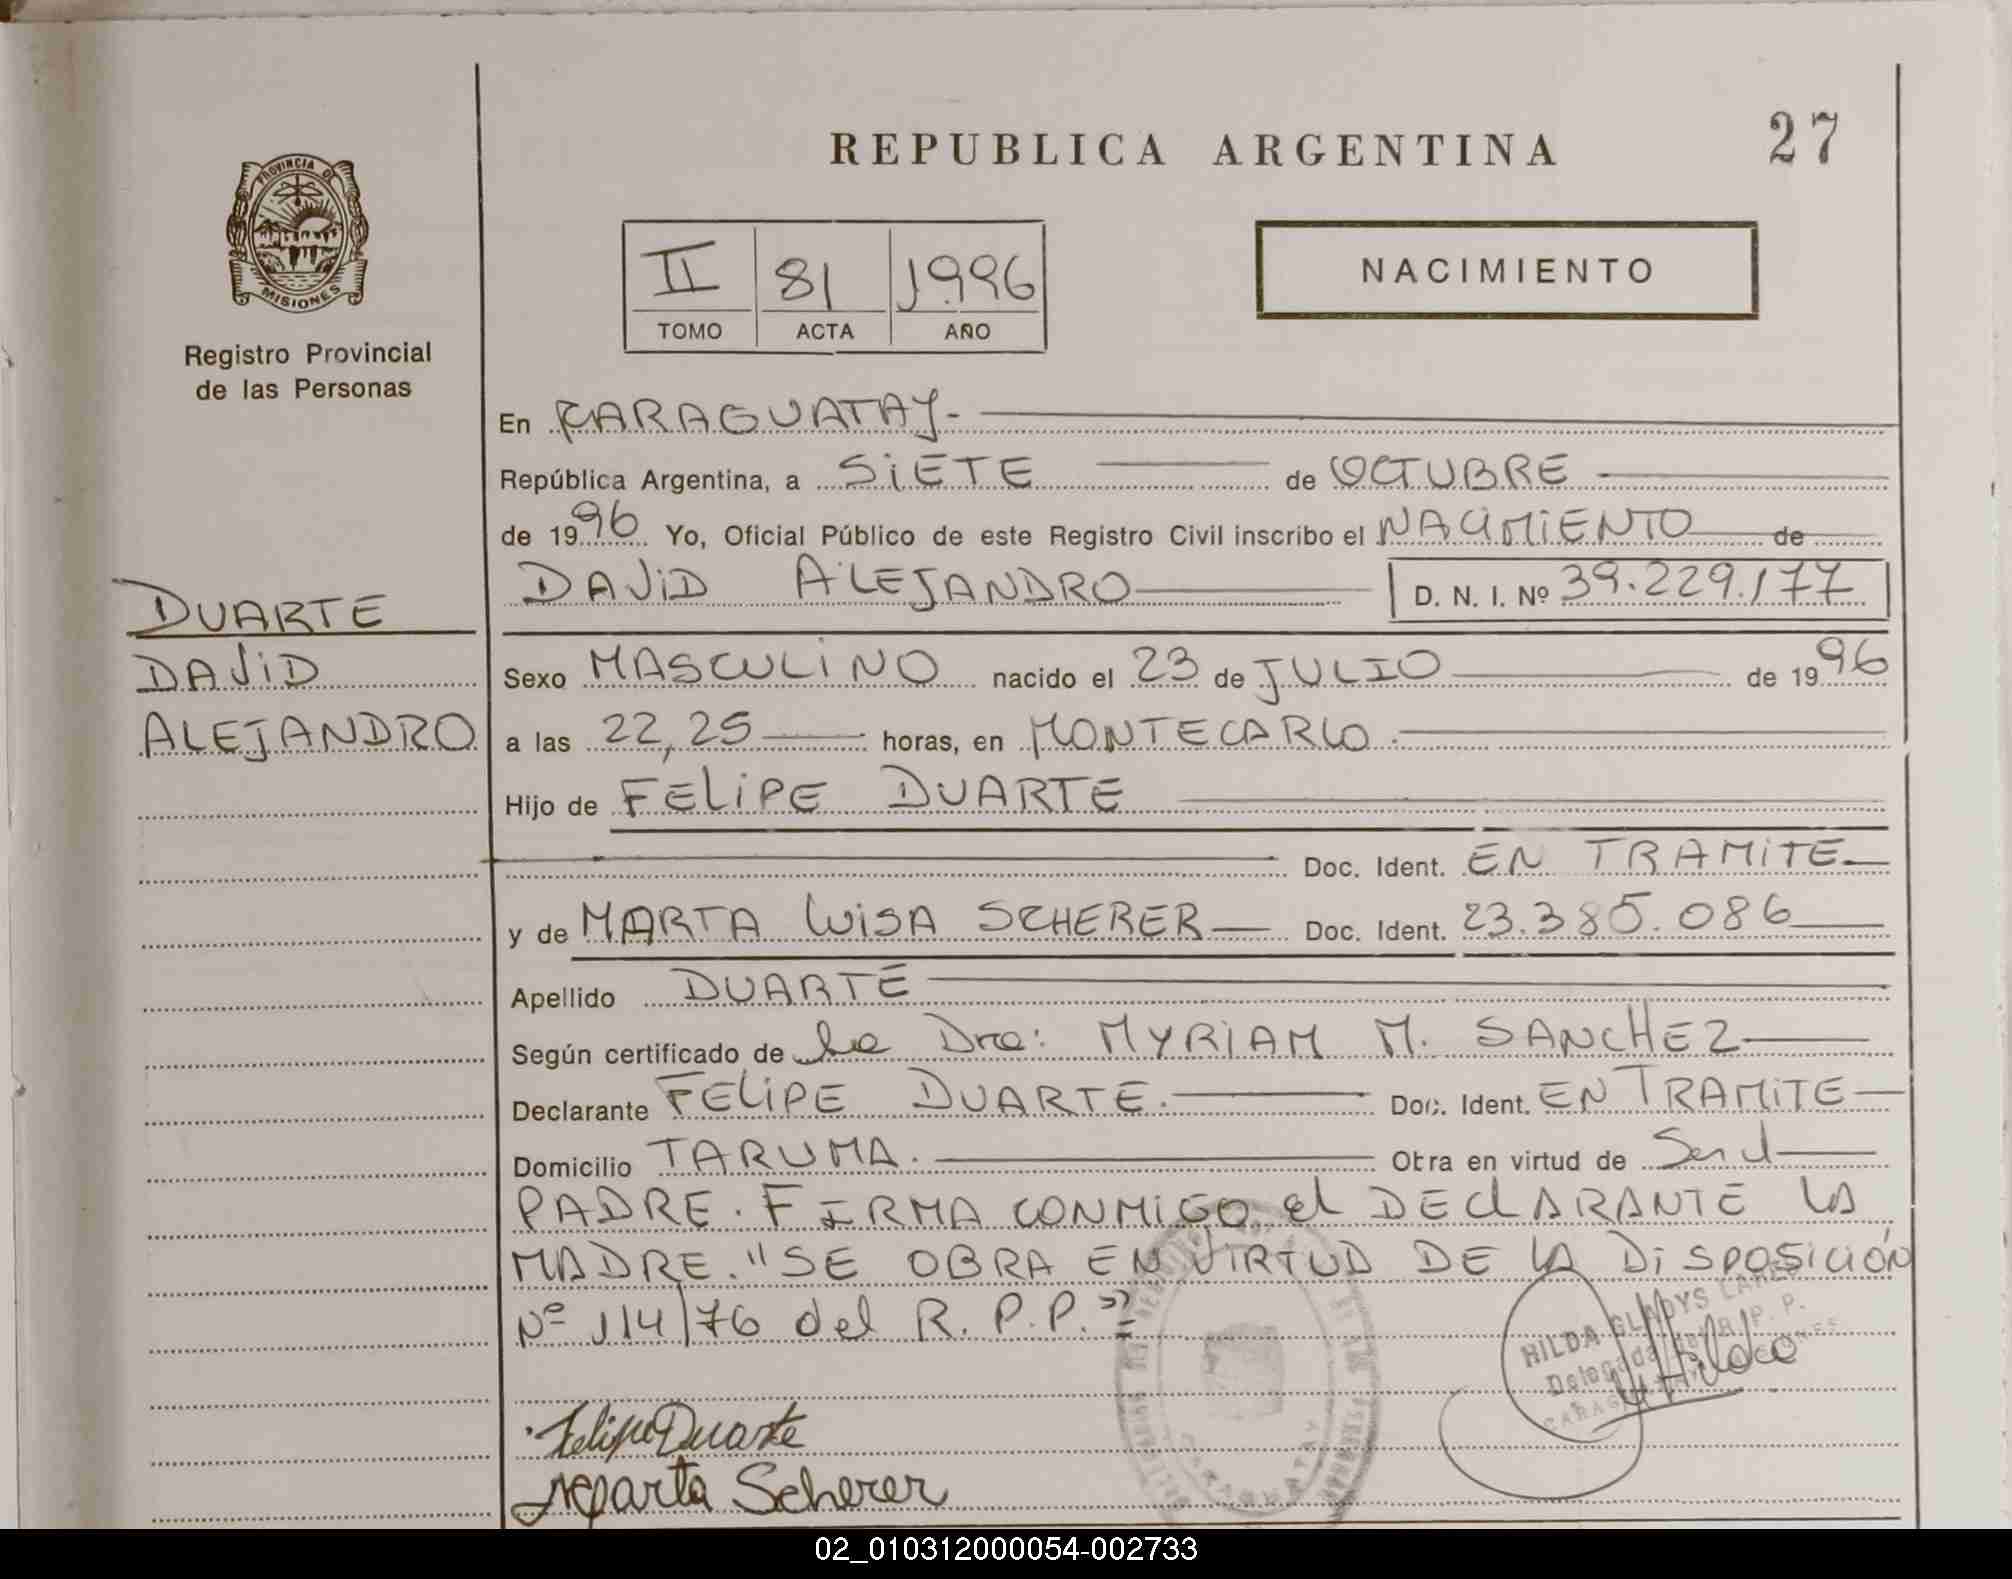 REPUBLICA ARGENTINA
27
PROVINCIA DE
MISIONES
Registro Provincial
de las Personas
II 81 1996
TOMO ACTA AÑO
NACIMIENTO
En CARAGUATAY.-
República Argentina, a SiETE de OCTUBRE
de 1996 Yo, Oficial Público de este Registro Civil inscribo el NACIMIENTO de
DAVID ALEJANDRO D. N. I. Nº 39.229.177
DUARTE
DAVID
ALEJANDRO
Sexo MASCULINO nacido el 23 de JULIO de 1996
a las 22,25 horas, en MONTECARLO.
Hijo de FELIPE DUARTE
Doc. Ident. EN TRAMITE
y de MARTA LUISA SCHERER Doc. Ident. 23.385.086
Apellido DUARTE
Según certificado de la Dra: MYRIAM M. SANCHEZ
Declarante FELIPE DUARTE. Doc. Ident. EN TRAMITE
Domicilio TARUMA. Obra en virtud de Ser el
PADRE. FIRMA CONMIGO el DEClARANTE LA
MADRE. "SE OBRA EN VIRTUD DE LA DISPOSICIÓN
Nº 114/76 del R. P. P."
HILDA GLADYS
Delegada del R. P. P.
Hilda
Felipe Duarte
Marta Scherer
CARAGUATAY
02_010312000054-002733